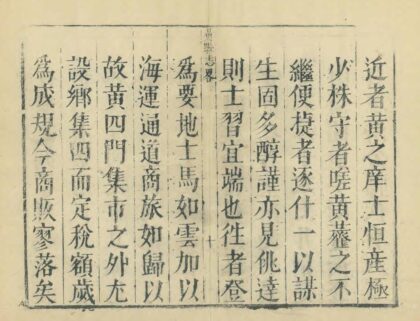 近者黃之庠士恒產極
少株守者嗟黃虀之不
繼便捷者逐什一以謀
生固多醇謹亦見佻達
則士習宜端也往者登
志畧
十
爲要地士馬如雲加以
海運通道商旅如歸以
故黃四門集市之外尤
設鄉集四面定稅額歲
爲成規今商敗寥落矣